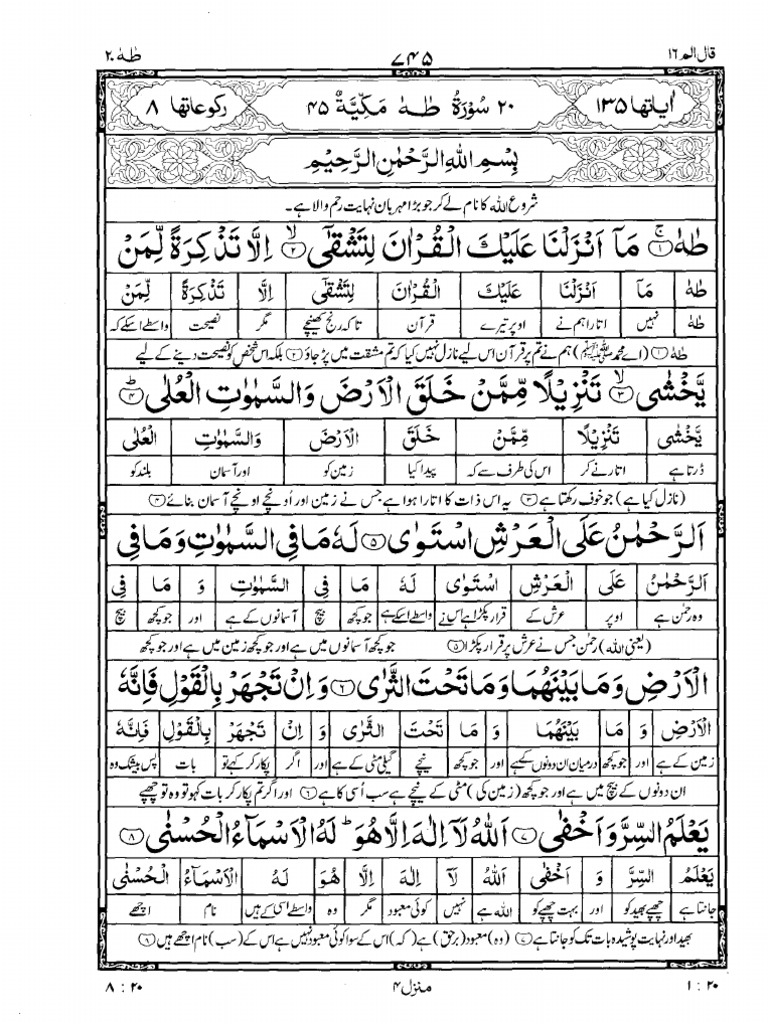 قال الم ١٦ ۷۴۵ طٰهٰ ٢٠
اٰیاتها ١٣٥ ٢٠ سُوْرَةُ طٰهٰ مَكِّیَّةٌ ٤٥ ركوعاتها ٨
بِسْمِ اللهِ الرَّحْمٰنِ الرَّحِیْمِ
شروع اللہ کا نام لے کر جو بڑا مہربان نہایت رحم والا ہے۔
طٰهٰ ۚ﴿١﴾ مَاۤ اَنْزَلْنَا عَلَیْكَ الْقُرْاٰنَ لِتَشْقٰۤی ۙ﴿٢﴾ اِلَّا تَذْكِرَةً لِّمَنْ
طٰهٰ مَاۤ اَنْزَلْنَا عَلَیْكَ الْقُرْاٰنَ لِتَشْقٰۤی اِلَّا تَذْكِرَةً لِّمَنْ
طٰہٰ نہیں اتارا ہم نے اوپر تیرے قرآن تاکہ رنج کھینچے مگر نصیحت واسطے اسکے کہ
طٰہٰ ﴿١﴾ (اے محمد ﷺ) ہم نے تم پر قرآن اس لیے نازل نہیں کیا کہ تم مشقت میں پڑ جاؤ ﴿٢﴾ بلکہ اس شخص کو نصیحت دینے کے لیے
یَّخْشٰی ۙ﴿٣﴾ تَنْزِیْلًا مِّمَّنْ خَلَقَ الْاَرْضَ وَالسَّمٰوٰتِ الْعُلٰی ؕ﴿٤﴾
یَّخْشٰی تَنْزِیْلًا مِّمَّنْ خَلَقَ الْاَرْضَ وَالسَّمٰوٰتِ الْعُلٰی
ڈرتا ہے اتارنے کر اس کی طرف سے کہ پیدا کیا زمین کو اور آسمان بلند کو
(نازل کیا ہے) جو خوف رکھتا ہے ﴿٣﴾ یہ اس ذات کا اتارا ہوا ہے جس نے زمین اور اُونچے اونچے آسمان بنائے ﴿٤﴾
اَلرَّحْمٰنُ عَلَی الْعَرْشِ اسْتَوٰی ﴿٥﴾ لَهٗ مَا فِی السَّمٰوٰتِ وَمَا فِی
اَلرَّحْمٰنُ عَلَی الْعَرْشِ اسْتَوٰی لَهٗ مَا فِی السَّمٰوٰتِ وَ مَا فِی
وہ رحمٰن ہے اوپر عرش کے قرار پکڑا ہے اس نے واسطے اسکے ہے جو کچھ بیچ آسمانوں کے ہے اور جو کچھ بیچ
(یعنی اللہ) رحمٰن جس نے عرش پر قرار پکڑا ﴿٥﴾ جو کچھ آسمانوں میں ہے اور جو کچھ زمین میں ہے اور جو کچھ
الْاَرْضِ وَمَا بَیْنَهُمَا وَمَا تَحْتَ الثَّرٰی ﴿٦﴾ وَاِنْ تَجْهَرْ بِالْقَوْلِ فَاِنَّهٗ
الْاَرْضِ وَ مَا بَیْنَهُمَا وَ مَا تَحْتَ الثَّرٰی وَ اِنْ تَجْهَرْ بِالْقَوْلِ فَاِنَّهٗ
زمین کے ہے اور جو کچھ درمیان ان دونوں کے ہے اور جو کچھ نیچے گیلی مٹی کے ہے اور اگر پکار کر کہے تو بات پس بیشک وہ
ان دونوں کے بیچ میں ہے اور جو کچھ (زمین کی) مٹی کے نیچے ہے سب اُسی کا ہے ﴿٦﴾ اور اگر تم پکار کر بات کہو تو وہ تو چھپے
یَعْلَمُ السِّرَّ وَاَخْفٰی ﴿٧﴾ اَللهُ لَاۤ اِلٰهَ اِلَّا هُوَ ؕ لَهُ الْاَسْمَآءُ الْحُسْنٰی ﴿٨﴾
یَعْلَمُ السِّرَّ وَ اَخْفٰی اَللهُ لَاۤ اِلٰهَ اِلَّا هُوَ لَهُ الْاَسْمَآءُ الْحُسْنٰی
جانتا ہے چھپے بھید کو اور بہت چھپے کو اللہ ہے نہیں کوئی معبود مگر وہ واسطے اسی کے ہیں نام اچھے
بھید اور نہایت پوشیدہ بات تک کو جانتا ہے ﴿٧﴾ (وہ) معبود (برحق) ہے (کہ) اس کے سوا کوئی معبود نہیں ہے اس کے (سب) نام اچھے ہیں ﴿٨﴾
٢٠ : ١ منزل ٤ ٢٠ : ٨